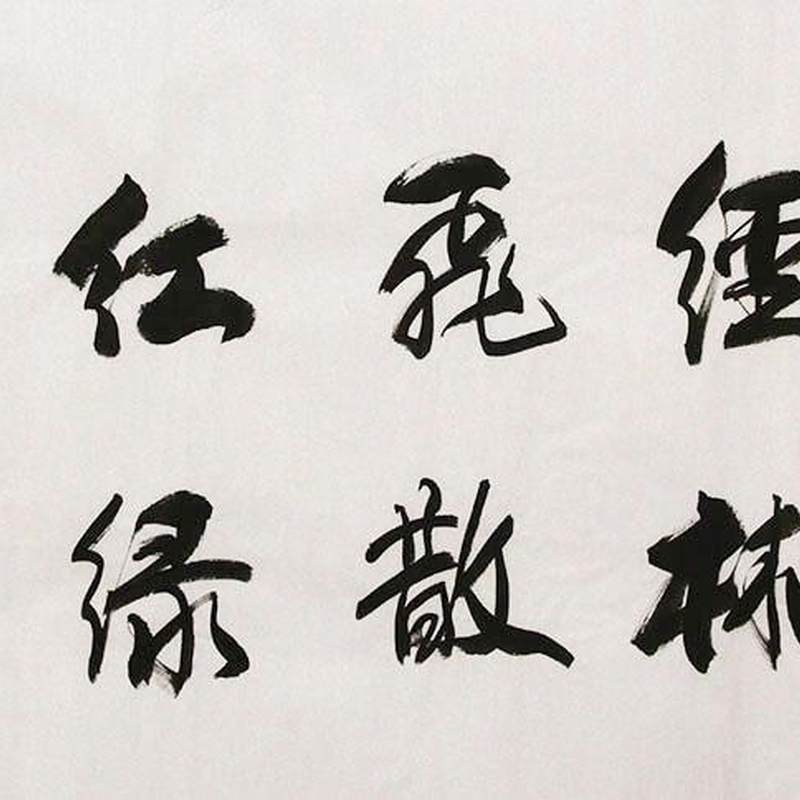 徑飛红
林散绿